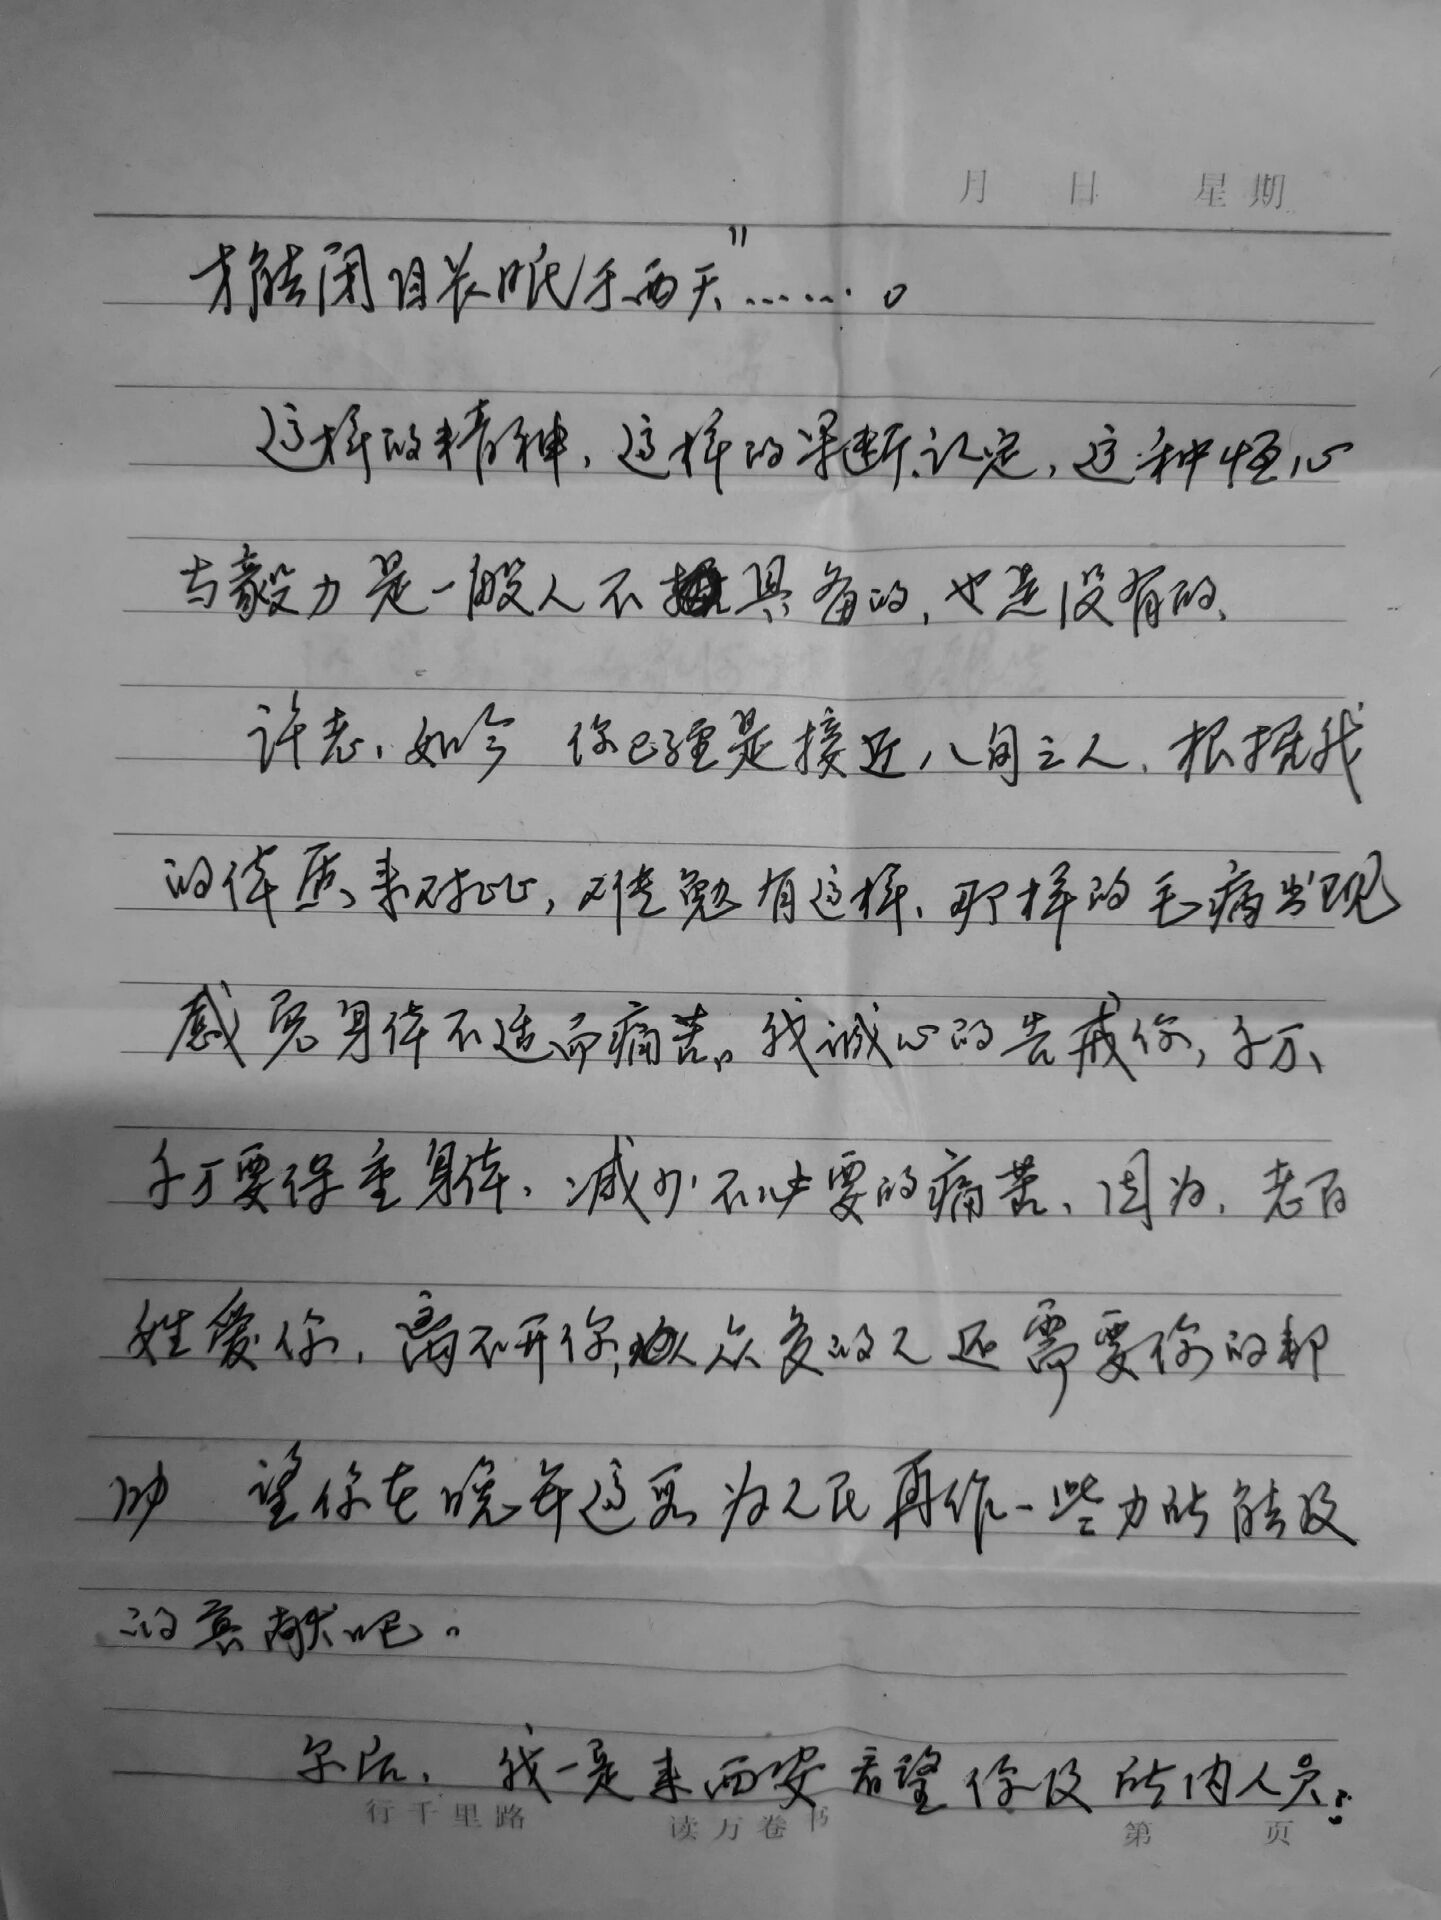 月 日 星期
才能闭目长眠于西天”……。
这样的精神，这样的果断、认定，这种恒心
与毅力是一般人不具备的，也是没有的、
许老、如今 你已经是接近八旬之人、根据我
的体质来对比，难勉有这样、那样的毛病出现
感觉身体不适而痛苦。我诚心的告戒你，千万、
千万要保重身体、减少不必要的痛苦、因为、老百
姓爱你，离不开你，众多的人还需要你的帮
助 望你在晚年这 为人民再作一些力所能及
的贡献吧。
尔后、我一是来西安看望你及所内人员；
行千里路 读万卷书 第 页